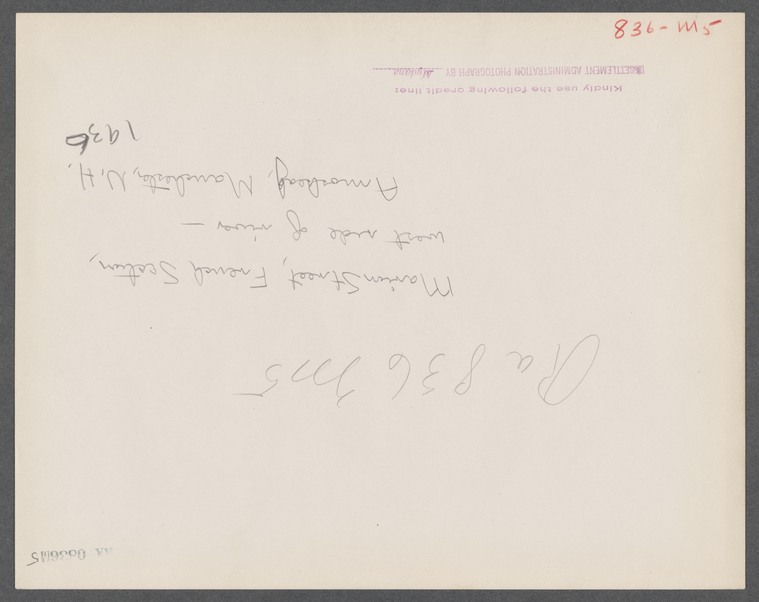 836-M5
Ra 836 M5
Marion Street, French Section,
west side of river —
Amoskeag, Manchester, N.H,
1936
Kindly use the following credit line:
RESETTLEMENT ADMINISTRATION PHOTOGRAPH BY Mydans